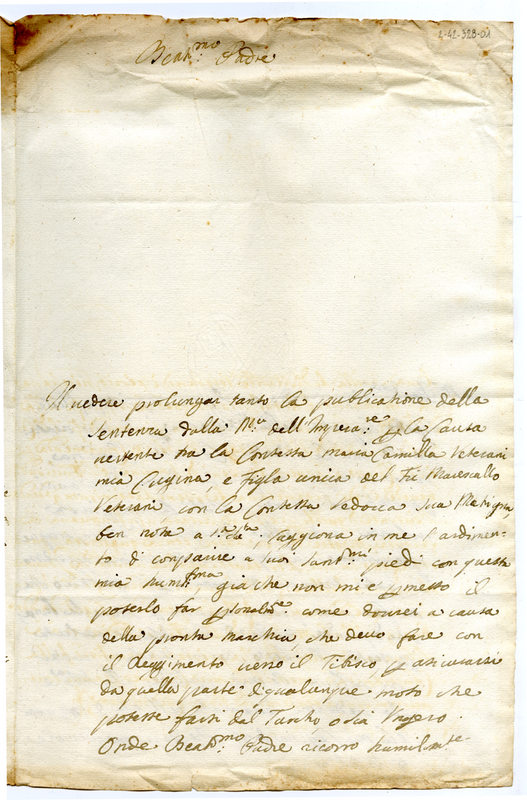 2-42-328-01
Beat.mo Padre
Il vedere prolungar tanto la publicatione della
sentenza dalla M.tà dell'Impera.re p la Causa
vertente tra la Contessa maria Camilla Veterani
mia Cugina e figla unica del fù Marescallo
Veterani con la Contessa Vedova sua Matrigna,
ben note a S.tà, caggiona in me l'ardimen-
to di comparire a suoi Sant.mi piedi con questa
mia humil.ma, già che non mi è pmesso il
poterlo far psonalm.e come dourei a causa
della pronta marchia, che devo fare con
il Reggimento verso il Tibisco, p asicurarsi
da quella parte di qualunque moto che
potesse farsi dal Turcho, o sia Vngero.
Onde Beat.mo Padre ricorro humilm.te